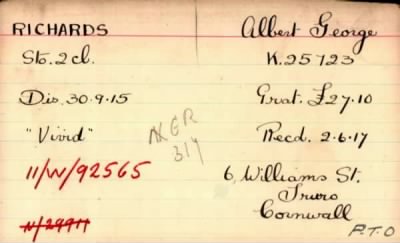 RICHARDS Albert George
Sto. 2 cl. K.25723
Dis. 30.9.15 Grat. £27.10
"Vivid" Recd. 2.6.17
11/W/92565 6, Williams St.
Truro
Cornwall
N/29911
P.T.O